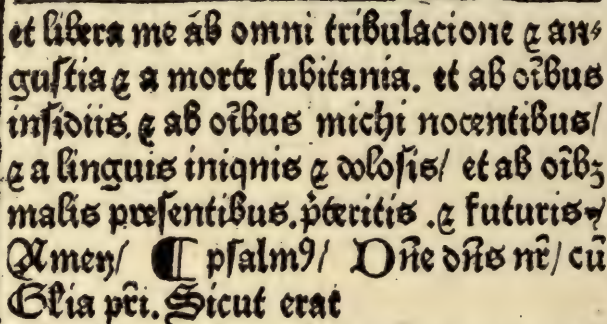 et libera me ab omni tribulacione ⁊ an⸗
guſtia ⁊ a morte ſubitania. et ab oĩbus
inſidiis. ⁊ ab oĩbus michi nocentibus/
⁊ a linguis iniqnis ⁊ doloſis/ et ab oĩbꝫ
malis preſentibus. p̃teritis .⁊ futuris⸗/
Amen/ ¶ pſalmꝰ/ Dñe dñs nr̃/ cũ
Glia pr̃i. Sicut erat